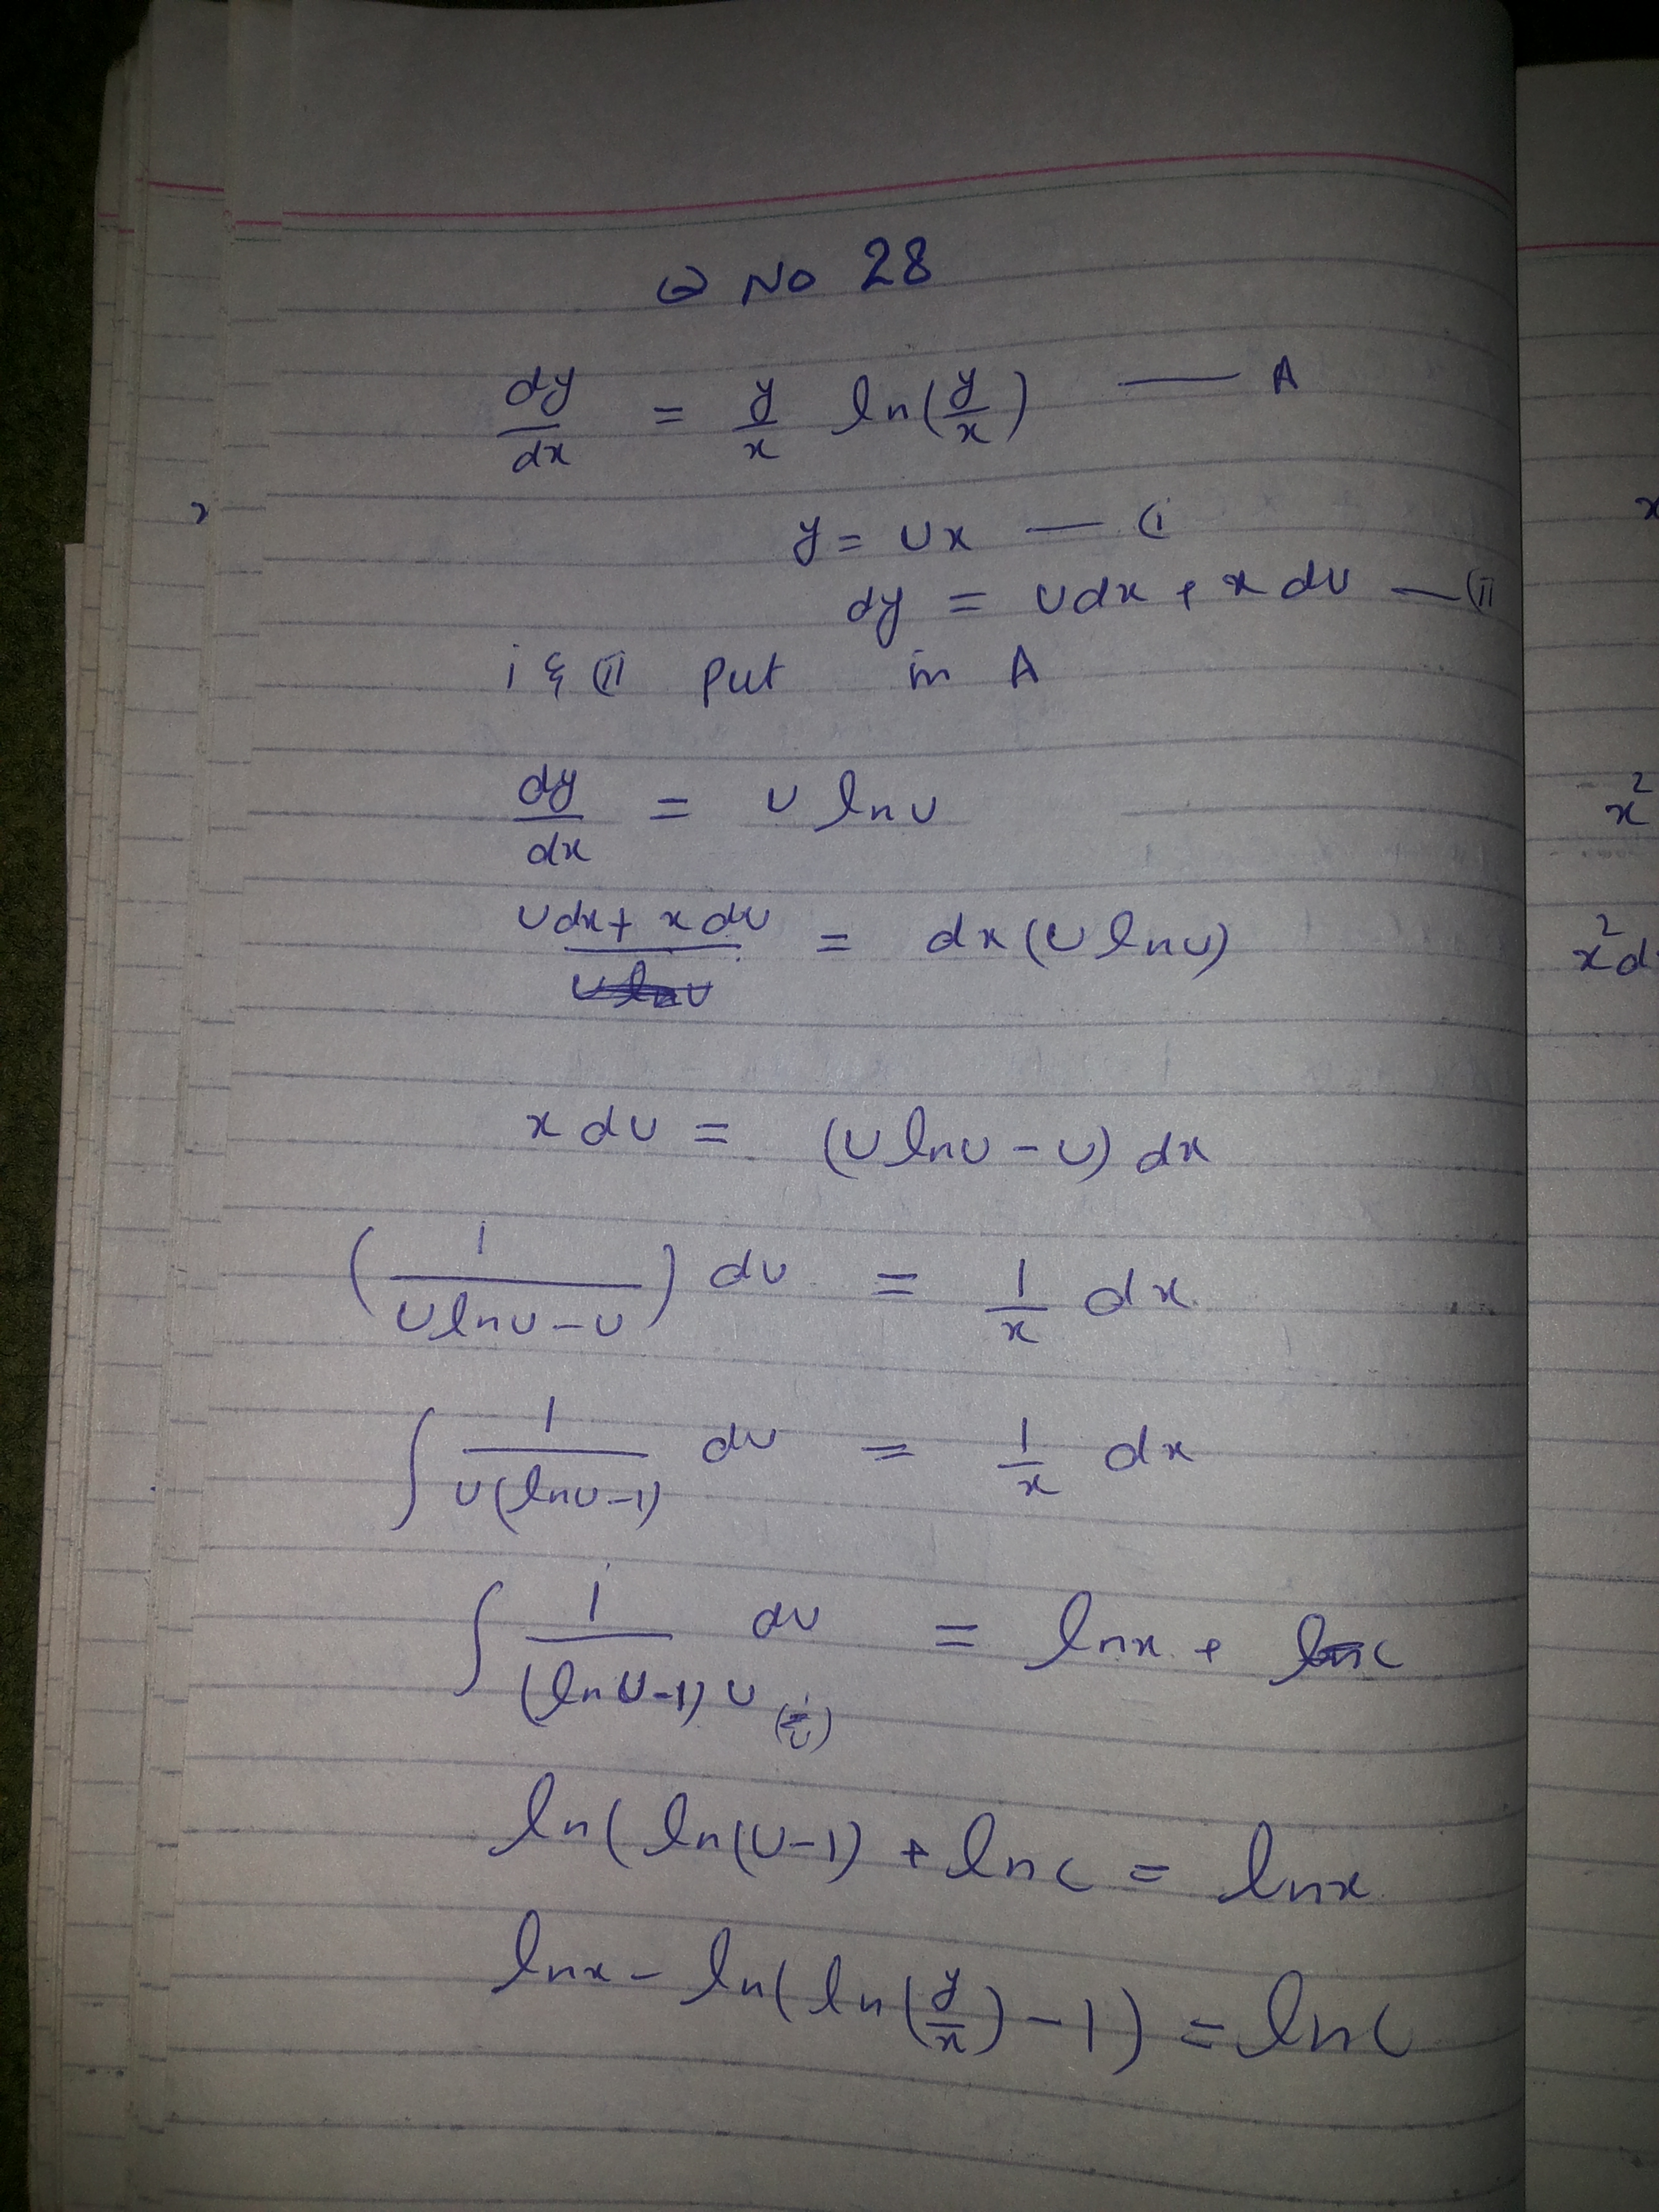 Q No 28
dy/dx = y/x ln(y/x) — A
y = ux — (i
dy = udx + x du — (ii
i & (ii put in A
dy/dx = u ln u
udx + x du = dx (u ln u)
x du = (u ln u - u) dx
(1/(u ln u - u)) du = 1/x dx
∫ 1/(u(ln u - 1)) du = 1/x dx
∫ 1/((ln u - 1) u) du = ln x + ln c
ln( ln(u-1) + ln c = ln x
ln x - ln( ln(y/x) - 1) = ln c
x
x²
x²d